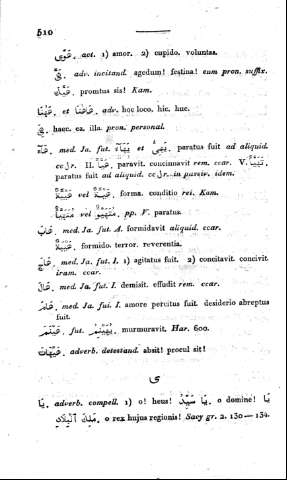 510
هَوًى. act. 1) amor. 2) cupido. voluntas.
هَيَّ. adv. incitand. agedum! festina! cum pron. suffix.
هَيَّكَ. promtus sis! Kam.
هٰهُنَا. et هَاهُنَا. adv. hoc loco. hic. huc.
هِىَ. haec. ea. illa. pron. personal.
هَاءَ. med. Ja. fut. يَهَاءُ et يَهِىءُ. paratus fuit ad aliquid.
II. هَيَّأَ. paravit. concinnavit rem. ccar. V. تَهَيَّأَ.
paratus fuit ad aliquid. in passiv. idem.
هَيْئَةٌ vel هِيئَةٌ. forma. conditio rei. Kam.
vel pp. V. paratus.
هَابَ. med. Ja. fut. A. formidavit aliquid. ccar.
هَيْبَةٌ. formido. terror. reverentia.
هَاجَ. med. Ja. fut. I. 1) agitatus fuit. 2) concitavit. concivit
iram. ccar.
هَالَ. med. Ja. fut. I. demisit. effudit rem. ccar.
هَامَ. med. Ja. fut. I. amore percitus fuit. desiderio abreptus
fuit.
هَيْنَمَ. fut. يُهَيْنِمُ. murmuravit. Har. 600.
هَيْهَاتَ. adverb. detestand. absit! procul sit!
ى
يَا. adverb. compell. 1) o! heus! يَا سَيِّدُ! o domine! يَا
مَلِكَ ٱلْبِلَادِ. o rex hujus regionis! Sacy gr. 2. 130 — 134.